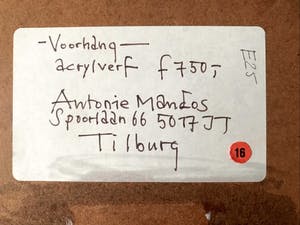 -Voorhang-
acrylverf f 750,-
E25
Antonie Mandos
Spoorlaan 66 5017 JT
Tilburg
16